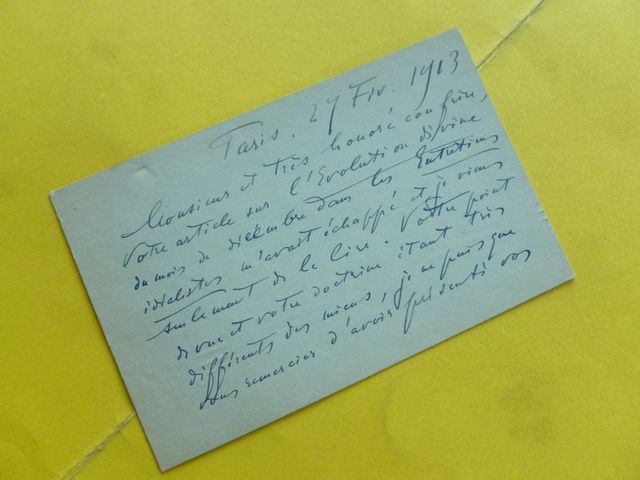 Paris. 27 Fév. 1913
Monsieur et très honoré confrère,
Votre article sur l'Evolution divine
du mois de décembre dans les Entretiens
idéalistes m'avait échappé et je viens
seulement de le lire. Votre point
de vue et votre doctrine étant très
différents des miens, je ne puis que
vous remercier d'avoir présenté vos